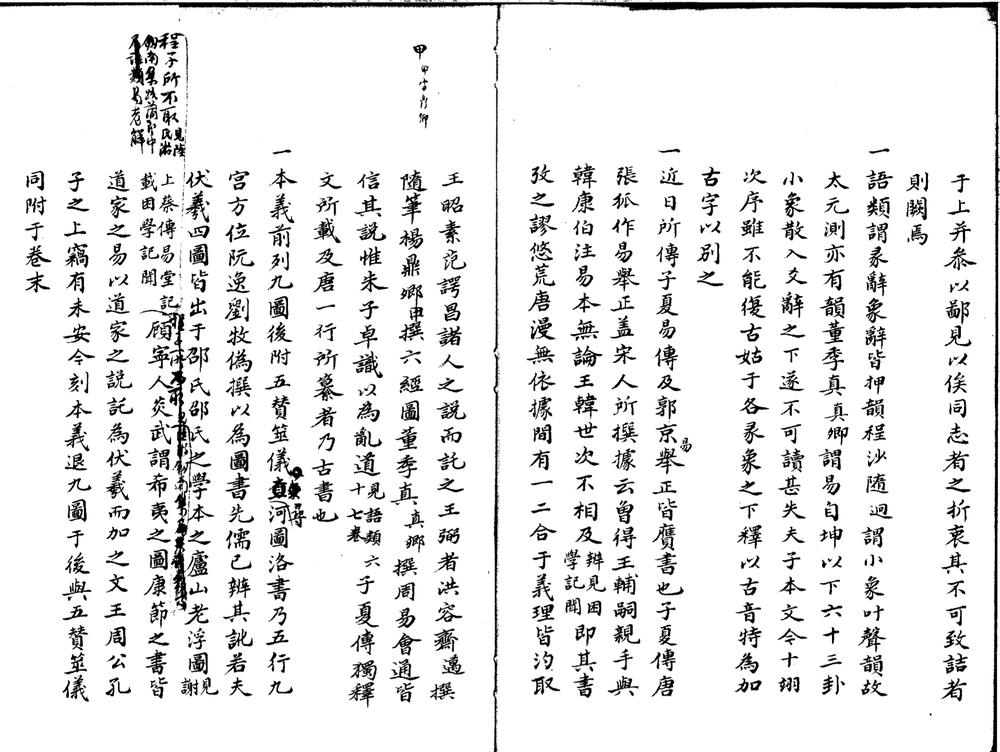 于上并叅以鄙見以俟同志者之折衷其不可致詰者
則闕焉
一語類謂彖辭象辭皆押韻程沙随迥謂小象叶聲韻故
太元測亦有韻董季真真卿謂易自坤以下六十三卦
小象散入爻辭之下遂不可讀甚失夫子本文今十翊
次序雖不能復古姑于各彖象之下釋以古音特為加
古字以别之
一近日所傳子夏易傳及郭京易舉正皆贋書也子夏傳唐
張狐作易舉正盖宋人所撰據云曾得王輔嗣親手與
韓康伯注易本無論王韓世次不相及辨見困學記聞即其書
攷之謬悠荒唐漫無依據間有一二合于義理皆汋取
王昭素范諤昌諸人之説而託之王弼者洪容齋邁撰
隨筆楊鼎卿甲撰六經圖董季真真卿撰周易會通皆
信其説惟朱子卓識以為亂道見語類六十七卷子夏傳獨釋
文所載及唐一行所纂者乃古書也
一本義前列九圖後附五賛筮儀河圖洛書乃五行九
宫方位阮逸劉牧偽撰以為圖書先儒已辨其訛若夫
伏羲四圖皆出于邵氏邵氏之學本之廬山老浮圖見謝
上蔡傳易堂記載困學記聞顧寧人炎武謂希夷之圖康節之書皆
道家之易以道家之説託為伏羲而加之文王周公孔
子之上竊有未安今刻本義退九圖于後與五賛筮儀
同附于卷末
甲
程子所不取見陸